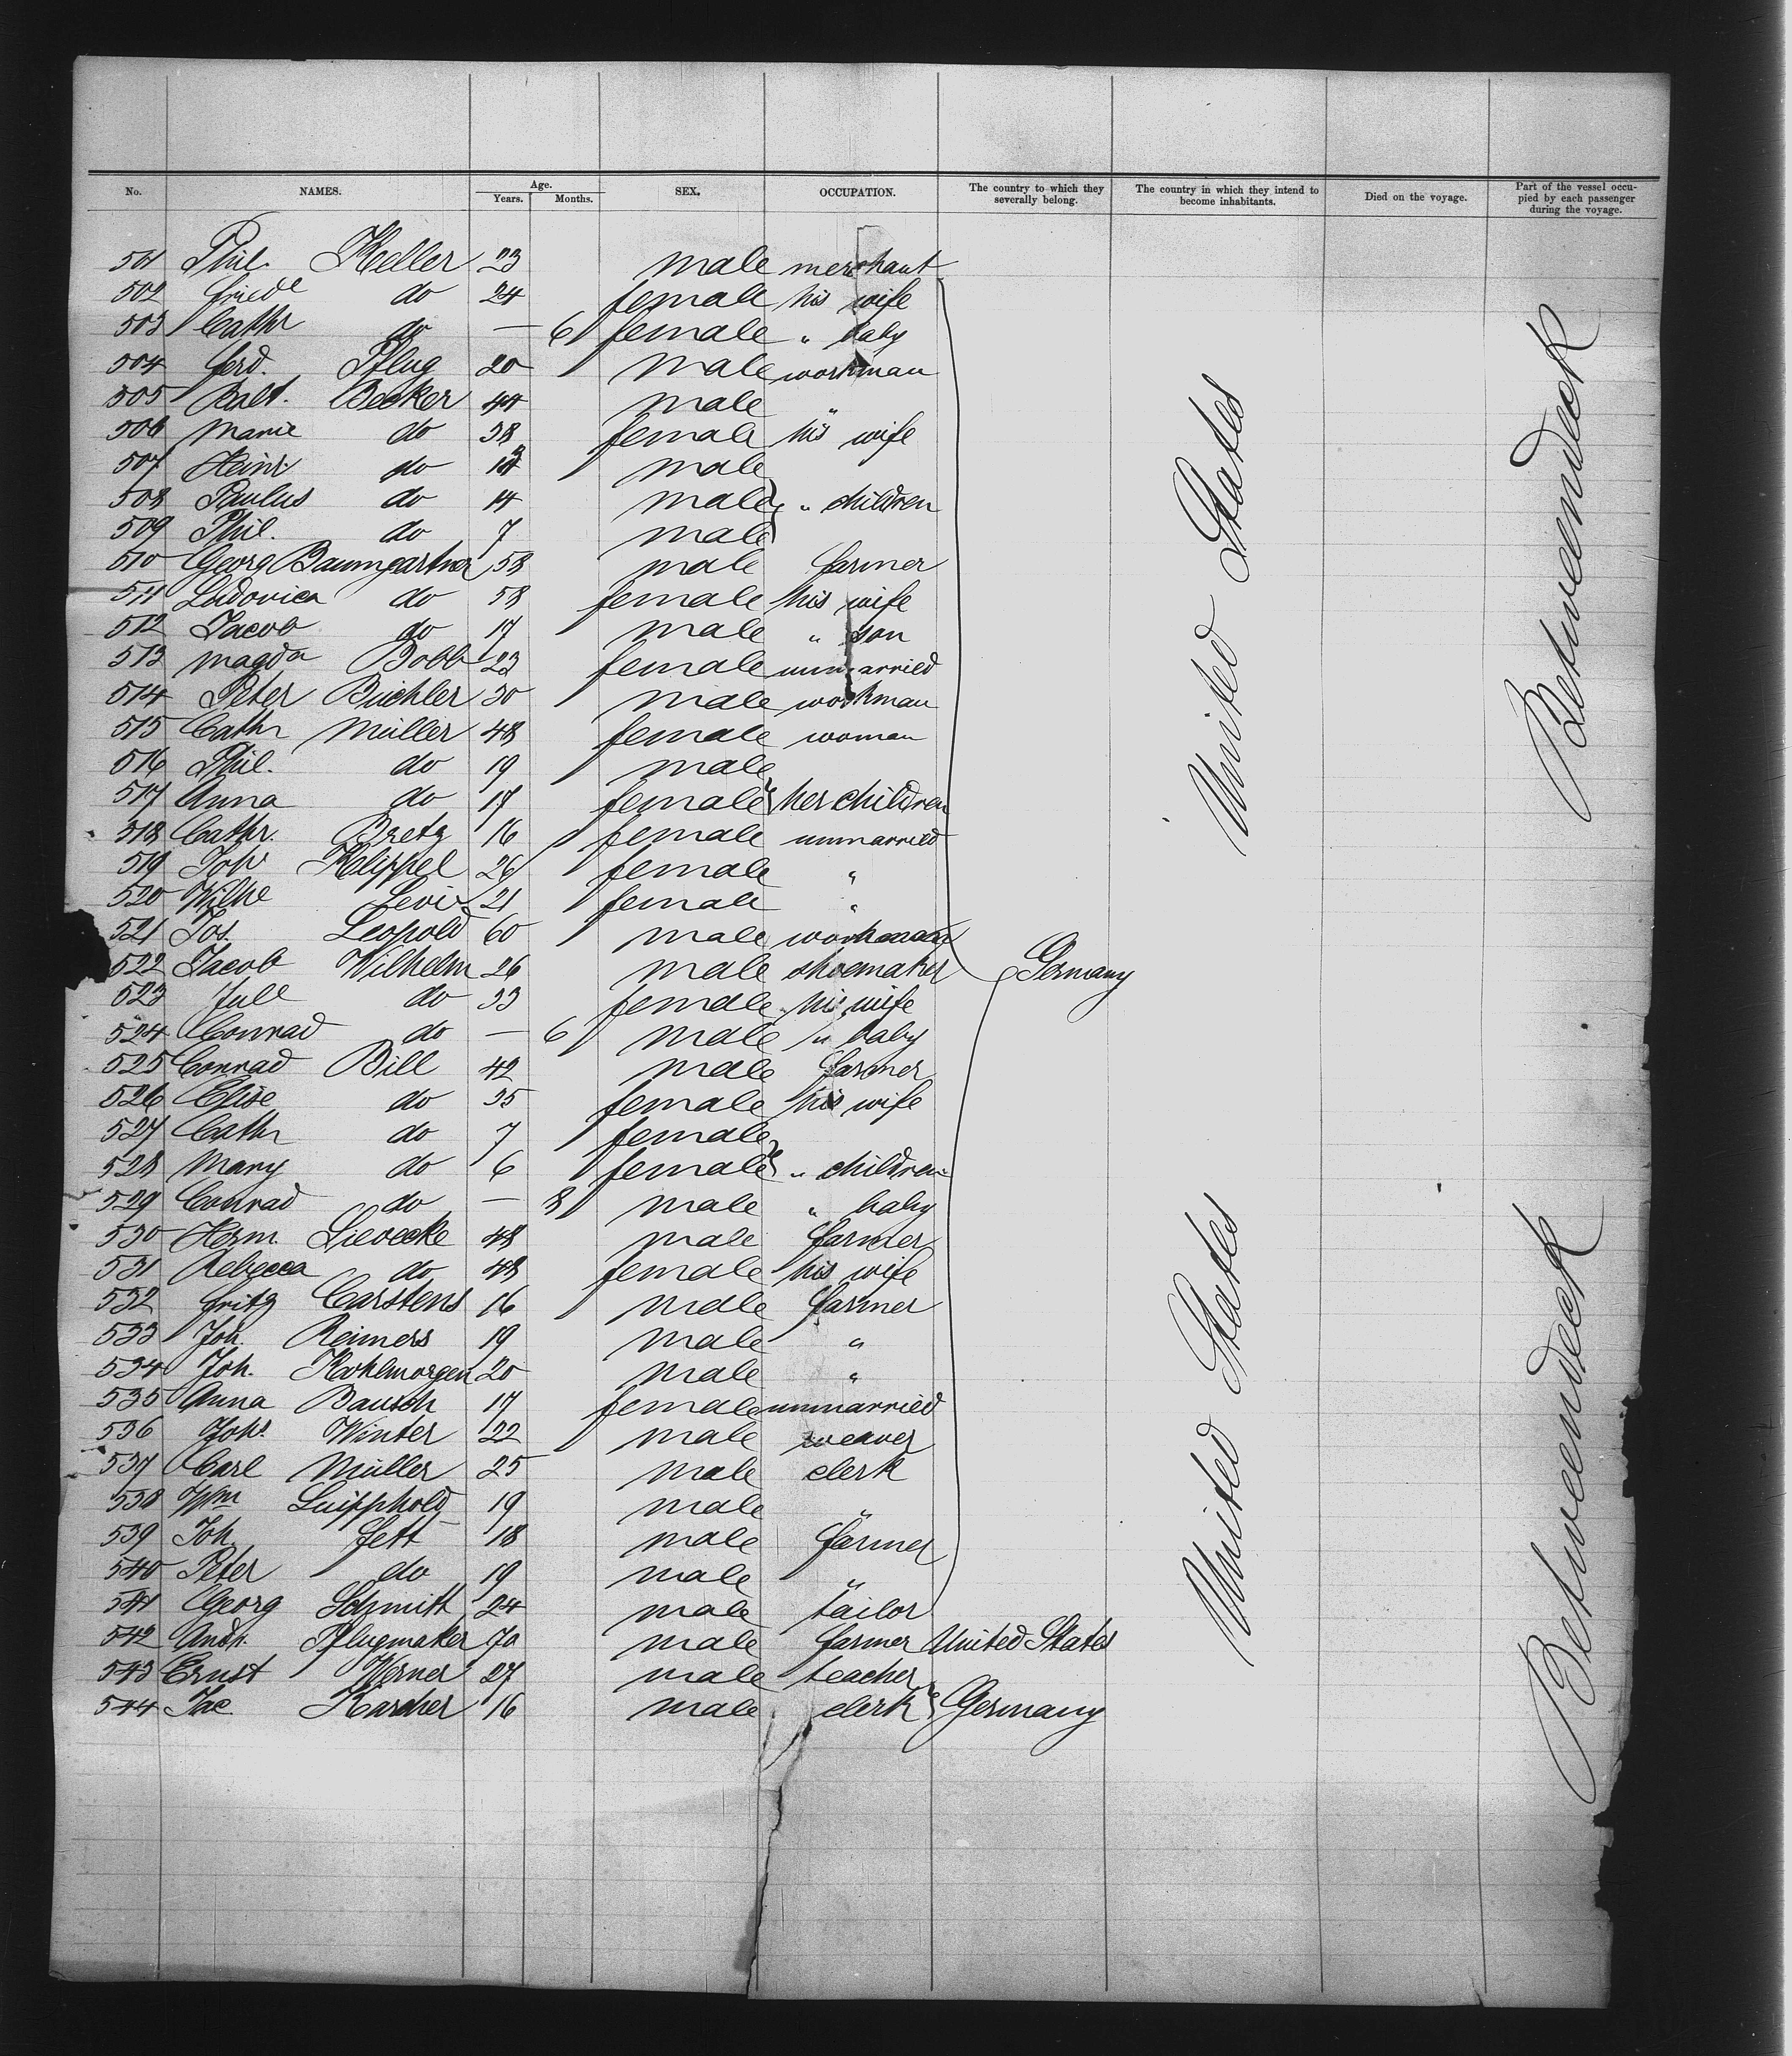 No. NAMES. Age. Years. Months. SEX. OCCUPATION. The country to which they severally belong. The country in which they intend to become inhabitants. Died on the voyage. Part of the vessel occupied by each passenger during the voyage.
501 Phil. Keller 23 male merchant
502 Friede do 24 female his wife
503 Cathr do — 6 female " baby
504 Ferd. Pflug 20 male workman
505 Balt. Becker 44 male "
506 Marie do 38 female his wife
507 Heinr. do male
508 Paulus do 14 male " children
509 Phil. do 7 male
510 Georg Baumgartner 58 male farmer
511 Ludovica do 58 female his wife
512 Jacob do 17 male " son
513 Magda Bobb 23 female unmarried
514 Peter Büchler 30 male workman
515 Cathr Müller 48 female woman
516 Phil. do 19 male
517 Anna do 17 female her children
518 Cathr. Bretz 16 female unmarried
519 Joh Klippel 26 female "
520 Wilhe Levi 21 female "
521 Jos. Leopold 60 male workman
522 Jacob Wilhelm 26 male shoemaker Germany
523 Jule do 33 female his wife
524 Conrad do — 6 male " baby
525 Conrad Bill 42 male farmer
526 Elise do 35 female his wife
527 Cathr do 7 female
528 Mary do 6 female " children
529 Conrad do — 8 male " baby
530 Herm. Lievecke 48 male farmer
531 Rebecca do 48 female his wife
532 Fritz Carstens 16 male farmer
533 Joh. Reimers 19 male "
534 Joh. Kohlmorgen 20 male "
535 Anna Bausch 17 female unmarried
536 Johs Winter 22 male weaver
537 Carl Müller 25 male clerk
538 Wm Luipphold 19 male "
539 Joh. Fett 18 male farmer
540 Peter do 19 male "
541 Georg Schmitt 24 male tailor
542 Andr. Pflugmaker 70 male farmer United States
543 Ernst Werner 27 male teacher
544 Jac. Karcher 16 male clerk Germany
United States
United States
Betweendeck
Betweendeck